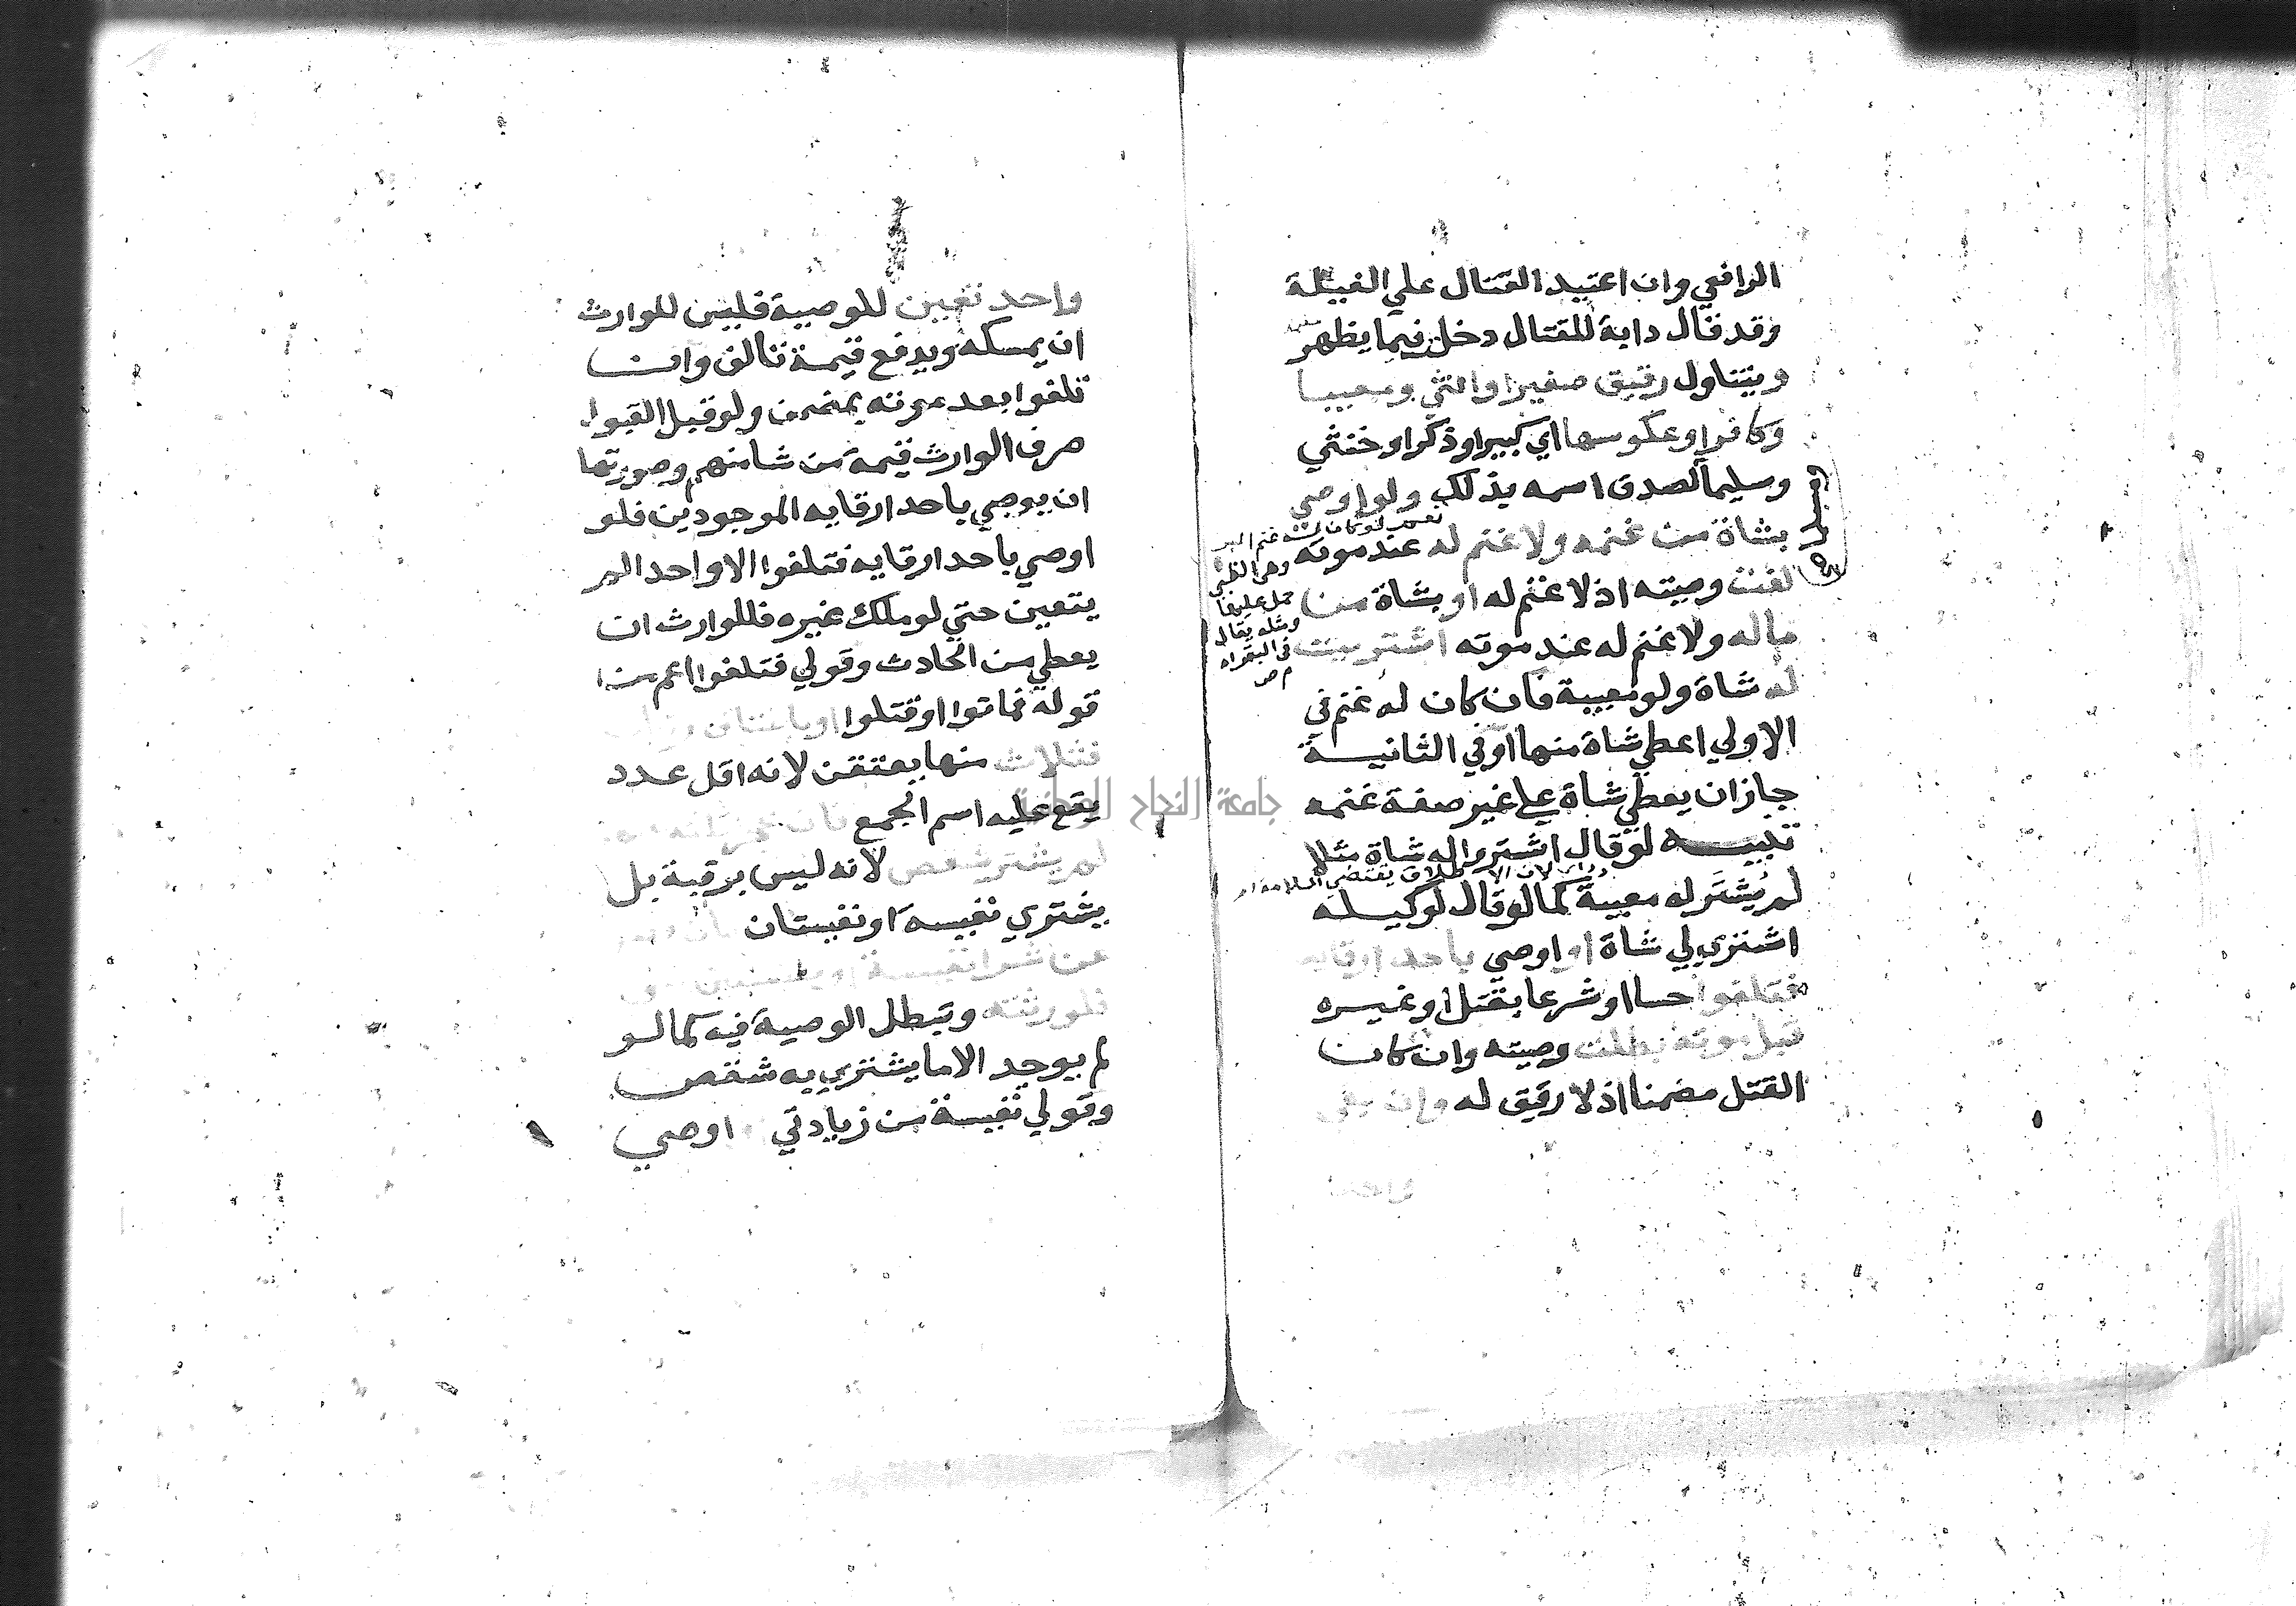 الرافعي وان اعتيد القتال علي الفيلة
وقد قال دابة للقتال دخل فيما يظهر
ويتناول رقيق صغيرا وانثي ومعيبا
وكافرا وعكوسها اي كبيرا وذكرا وخنثي
وسليما لصدق اسمه بذلك ولو اوصي
بشاة من غنمه ولا غنم له عند موته
لغت وصيته اذ لا غنم له او بشاة من
ماله ولا غنم له عند موته اشتريت
له شاة ولو معيبة فان كان له غنم في
الاولي اعطي شاة منها او في الثانية
جاز ان يعطي شاة علي غير صفة غنمه
تنبيه لو قال اشتروا له شاة مثلا
لم يُشتَر له معيبة كما لو قال لوكيله
اشتري لي شاة او اوصي باحد ارقايه
فتلفوا حسا او شرعا بقتل او غيره
قبل موته بطلت وصيته وان كان
القتل مضمنا اذ لا رقيق له وان بقي
نعم لو كان له غنم البر
وهي الظبي
حمل عليها
ومثله يقال
في البقر اه
م ر
لان الاطلاق يقتضي السلامة
واحد تعين للوصية فليس للوارث
ان يمسكه ويدفع قيمة تالف وان
تلفوا بعد موته بمضمن ولو قبل القبول
صرف الوارث قيمة من شا منهم وصورتها
ان يوصي باحد ارقايه الموجودين فلو
اوصي باحد ارقايه فتلفوا الا واحد الم
يتعين حتي لو ملك غيره فللوارث ان
يعطي من الحادث وقولي فتلفوا اعم من
قوله فماتوا او قتلوا او باعتاق رقاب
فثلاث منها يعتقن لانه اقل عدد
يقع عليه اسم الجمع
لم يشتر شقص لانه ليس برقبة بل
يشتري نفيسة او نفيستان
عن شرا نفيسة او نفيستين
فلورثته وتبطل الوصية فيه كما لو
لم يوجد الا ما يشتري به شقص
وقولي نفيسة من زيادتي اوصي
جامعة النجاح الوطنية